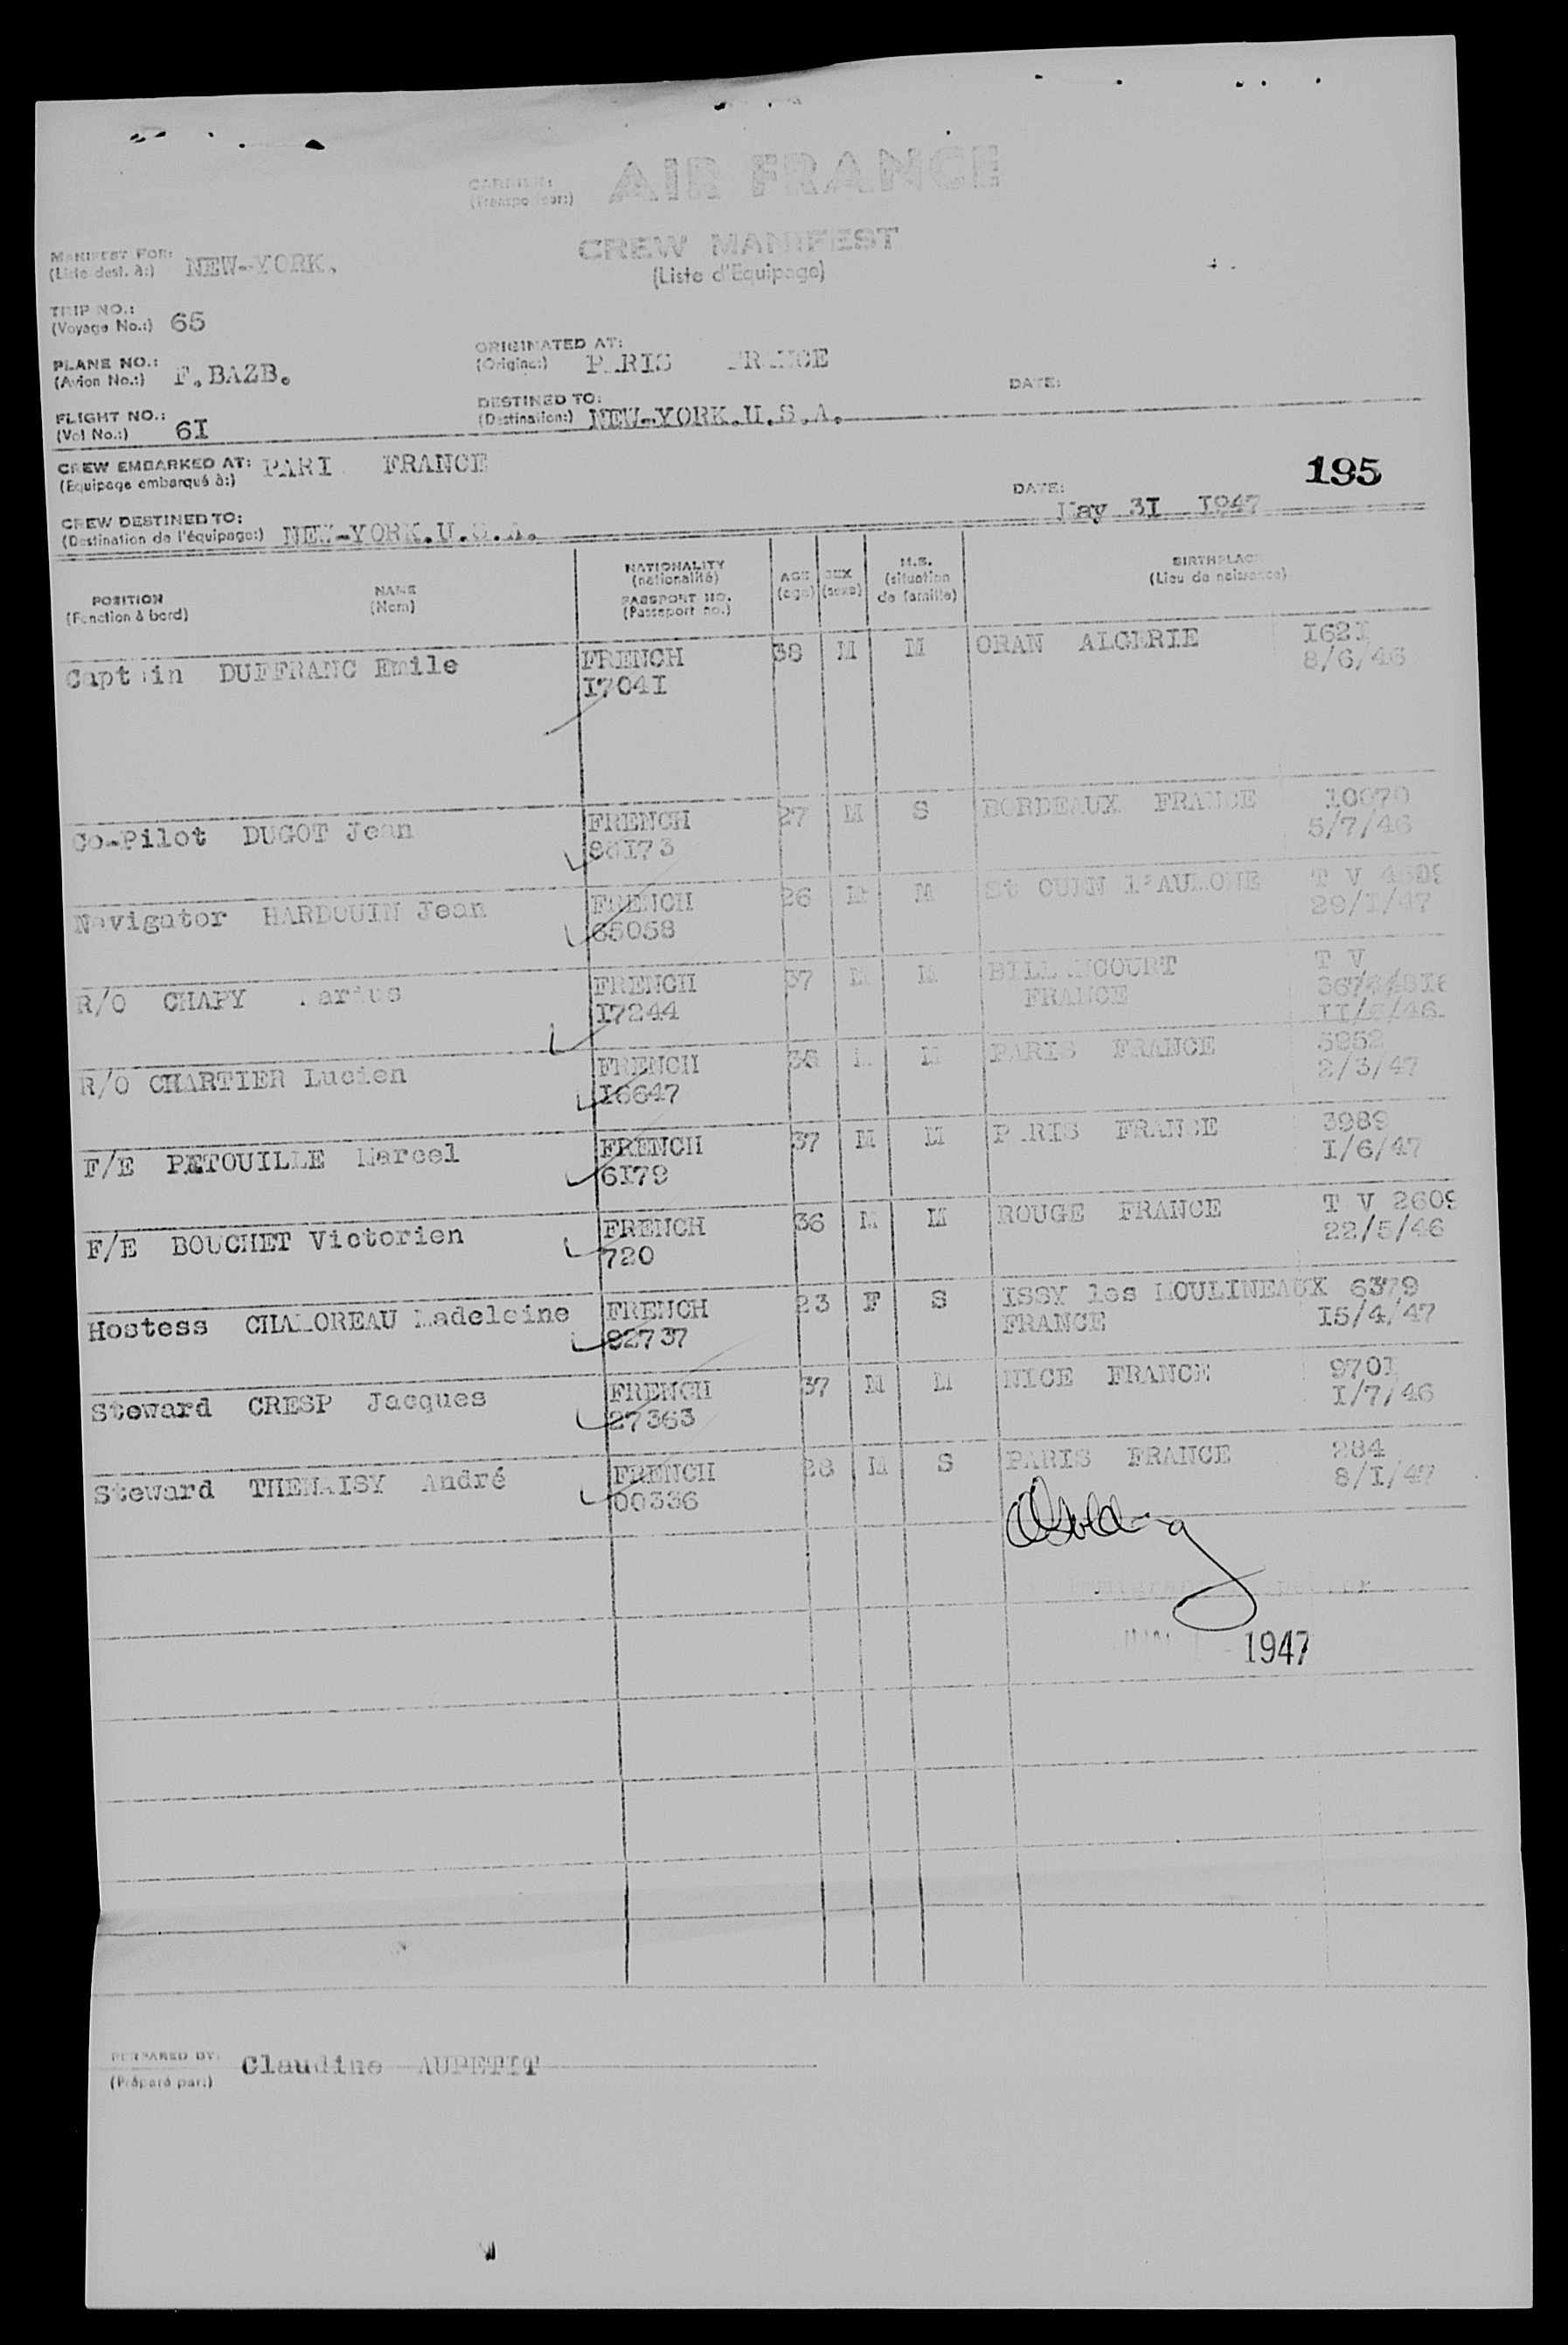 CARRIER: AIR FRANCE
(Transporteur:)
CREW MANIFEST
(Liste d'Equipage)
MANIFEST FOR: NEW-YORK.
(Liste dest. à:)
TRIP NO.: 65
(Voyage No.:)
PLANE NO.: F.BAZB.
(Avion No.:)
ORIGINATED AT: PARIS FRANCE
(Origine:)
FLIGHT NO.: 6I
(Vol No.:)
DESTINED TO: NEW-YORK.U.S.A.
(Destination:)
DATE:
CREW EMBARKED AT: PARI FRANCE
(Equipage embarqué à:)
195
CREW DESTINED TO: NEW-YORK.U.S.A.
(Destination de l'équipage:)
DATE: May 3I I947
POSITION NAME NATIONALITY AGE SEX M.S. BIRTHPLACE
(Fonction à bord) (Nom) (nationalité) (age) (sexe) (situation de famille) (Lieu de naissance)
PASSPORT NO.
(Passeport no.)
Captain DUFFRANC Emile FRENCH 38 M M ORAN ALGERIE I62I
I704I 8/6/46
Co-Pilot DUGOT Jean FRENCH 27 M S BORDEAUX FRANCE
5/7/46
Navigator HARDOUIN Jean FRENCH 26 M M St OUEN l'AUMONE T V
65058 29/I/47
R/O CHAPY FRENCH 37 M M BILLANCOURT T V
I7244 FRANCE
R/O CHARTIER Lucien FRENCH M M PARIS FRANCE 5952
I6647 2/3/47
F/E PETOUILLE Marcel FRENCH 37 M M PARIS FRANCE 3989
6I79 I/6/47
F/E BOUCHET Victorien FRENCH 36 M M ROUGE FRANCE T V 2609
720 22/5/46
Hostess CHALOREAU Madeleine FRENCH 23 F S ISSY les MOULINEAUX 6379
82737 FRANCE I5/4/47
Steward CRESP Jacques FRENCH 37 M M NICE FRANCE 970I
27363 I/7/46
Steward THENAISY André FRENCH 28 M S PARIS FRANCE 284
00336 8/I/47
JUN 1 - 1947
PREPARED BY: Claudine AUPETIT
(Préparé par:)